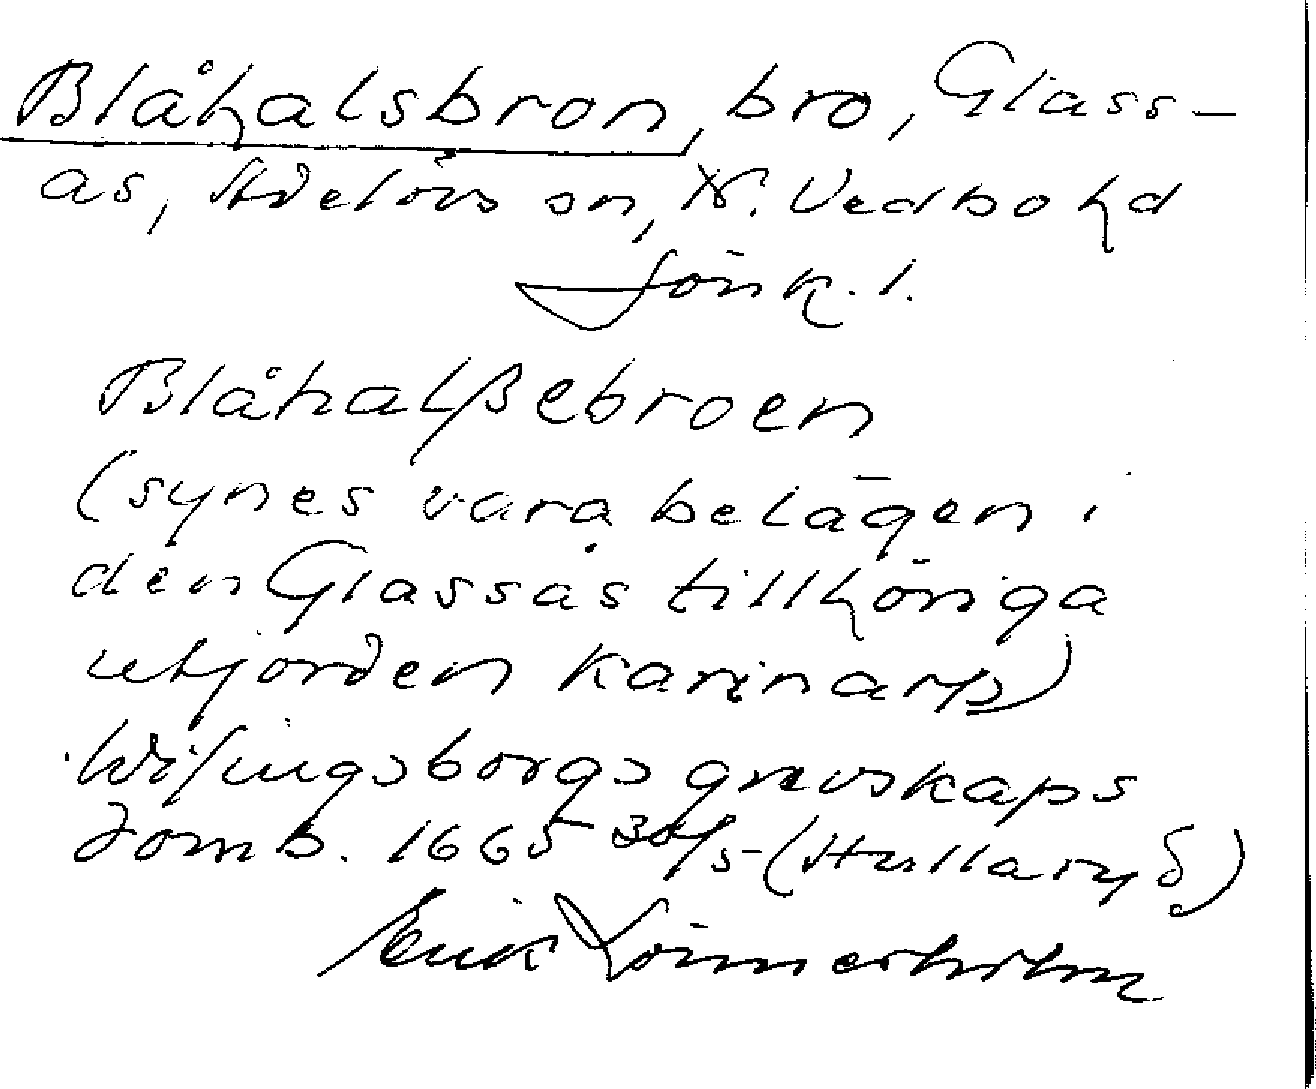 Blåhalsbron, bro, Glass-
as, Adelövs sn, N. Vedbo hd
Jönk. l.
Blåhalßebroen
(synes vara belägen i
den Glassås tillhöriga
utjorden Karinarp)
Wisingsborgs grevskaps
jomb. 1665 30/5 (Hullaryd)
Erik Lönnerholm